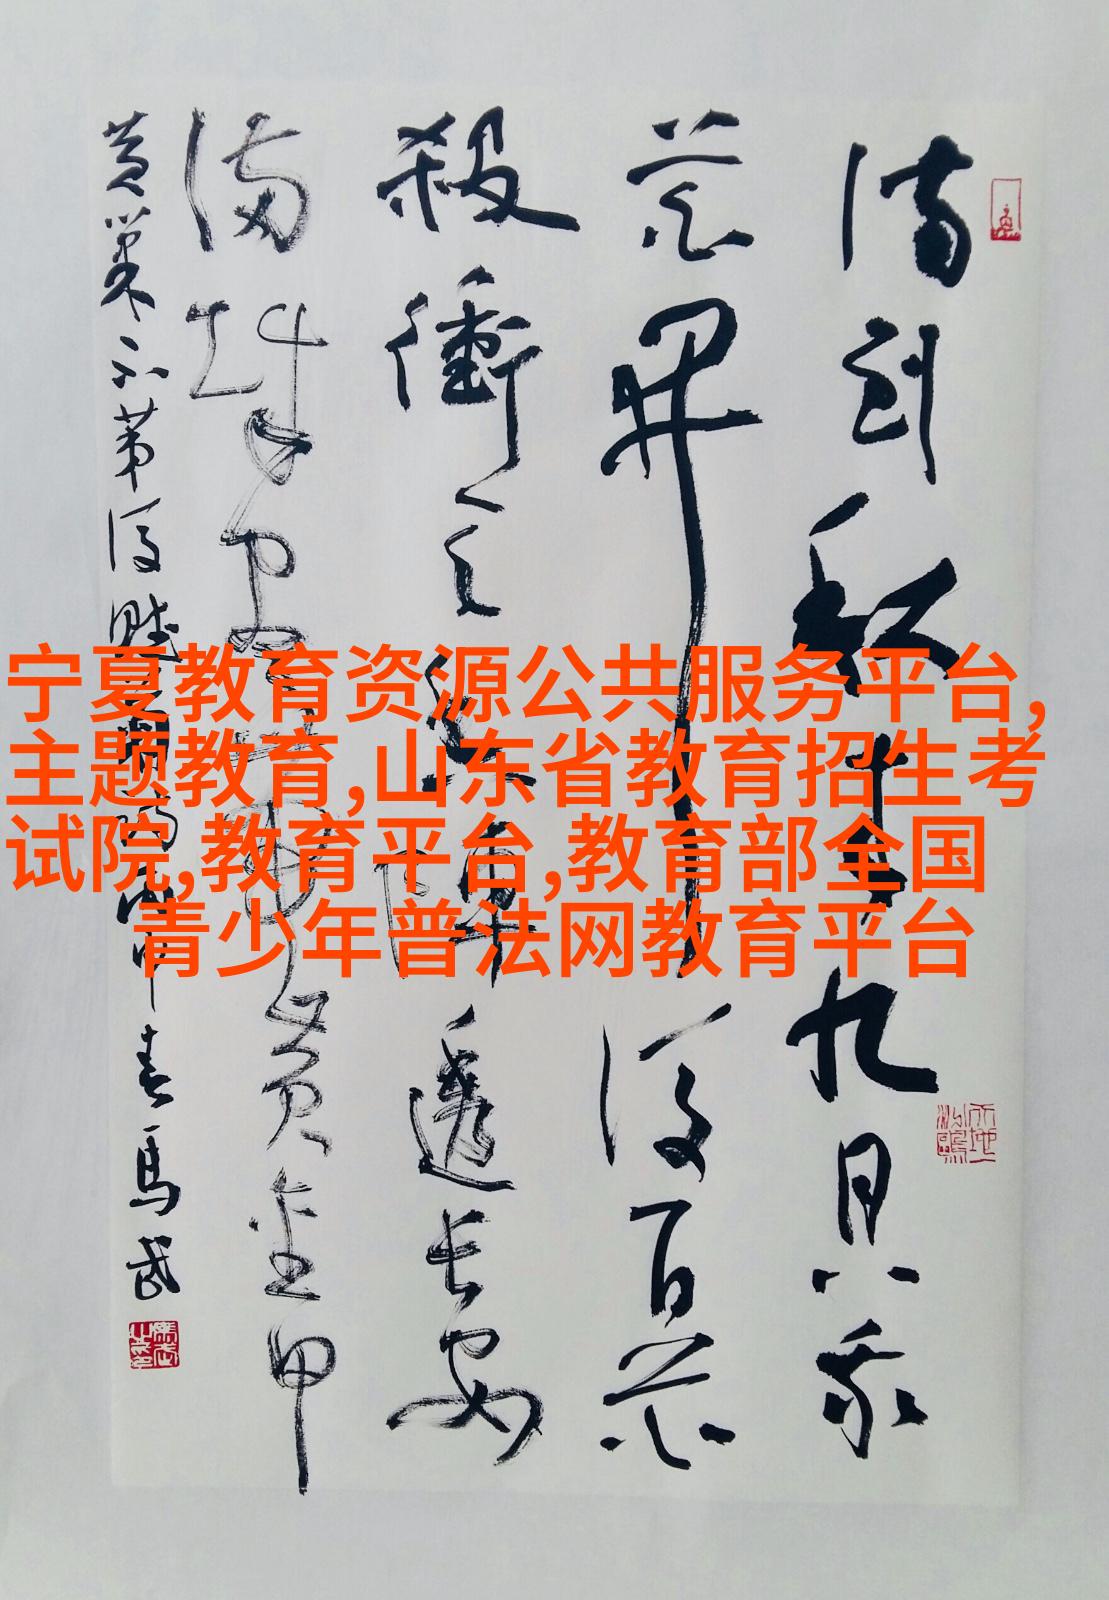 待到秋来九月八我
花開後百花
殺衝天香陣透長安
满城盡帶黄金甲
黄巢不第後 申春馬武
宁夏教育资源公共服务平台,
主题教育,山东省教育招生考
试院,教育平台,教育部全国
青少年普法网教育平台